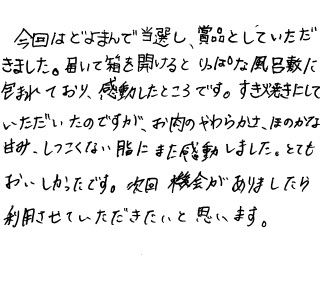 今回はどよまんで当選し、賞品としていただ
きました。届いて箱を開けるとりっぱな風呂敷に
包まれており、感動したところです。すきやきにして
いただいたのですが、お肉のやわらかさ、ほのかな
甘み、しつこくない脂にまた感動しました。とても
おいしかったです。次回機会がありましたら
利用させていただきたいと思います。